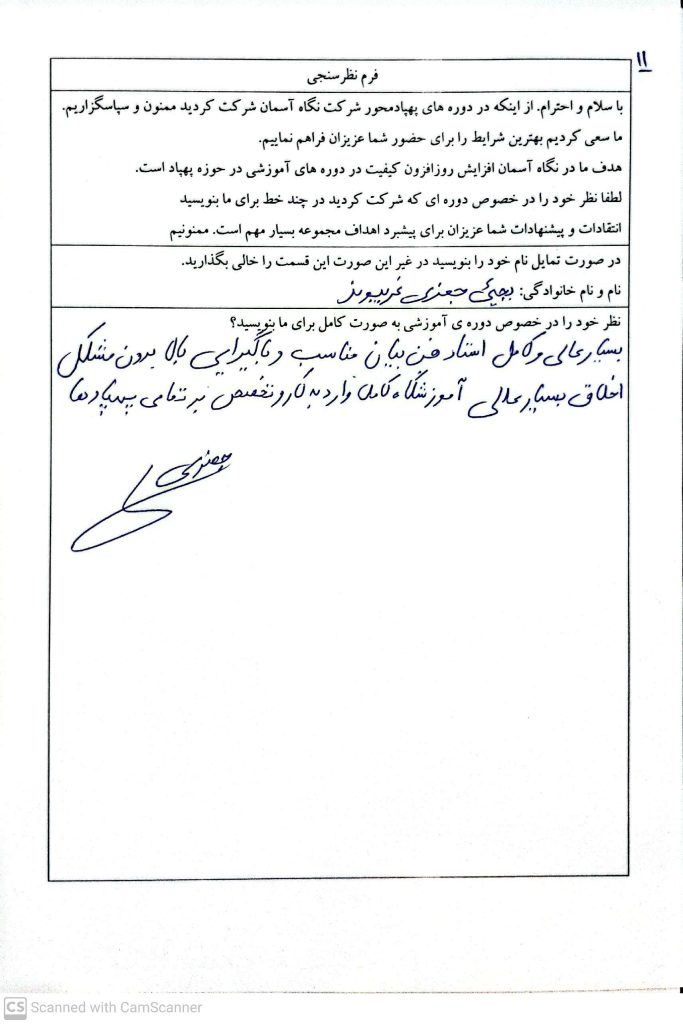 ۱۱
فرم نظرسنجی
با سلام و احترام. از اینکه در دوره های پهپادمحور شرکت نگاه آسمان شرکت کردید ممنون و سپاسگزاریم.
ما سعی کردیم بهترین شرایط را برای حضور شما عزیزان فراهم نماییم.
هدف ما در نگاه آسمان افزایش روزافزون کیفیت در دوره های آموزشی در حوزه پهپاد است.
لطفا نظر خود را در خصوص دوره ای که شرکت کردید در چند خط برای ما بنویسید
انتقادات و پیشنهادات شما عزیزان برای پیشبرد اهداف مجموعه بسیار مهم است. ممنونیم
در صورت تمایل نام خود را بنویسید در غیر این صورت این قسمت را خالی بگذارید.
نام و نام خانوادگی: یحیی جعفری
نظر خود را در خصوص دوره ی آموزشی به صورت کامل برای ما بنویسید؟
بسیار عالی و کامل استاد فن بیان مناسب و با گیرایی بالا بدون مشکل
اخلاق بسیار عالی آموزشگاه کاملا وارد به کار و تخصص بر تمامی پهپادها
جعفری
CS Scanned with CamScanner